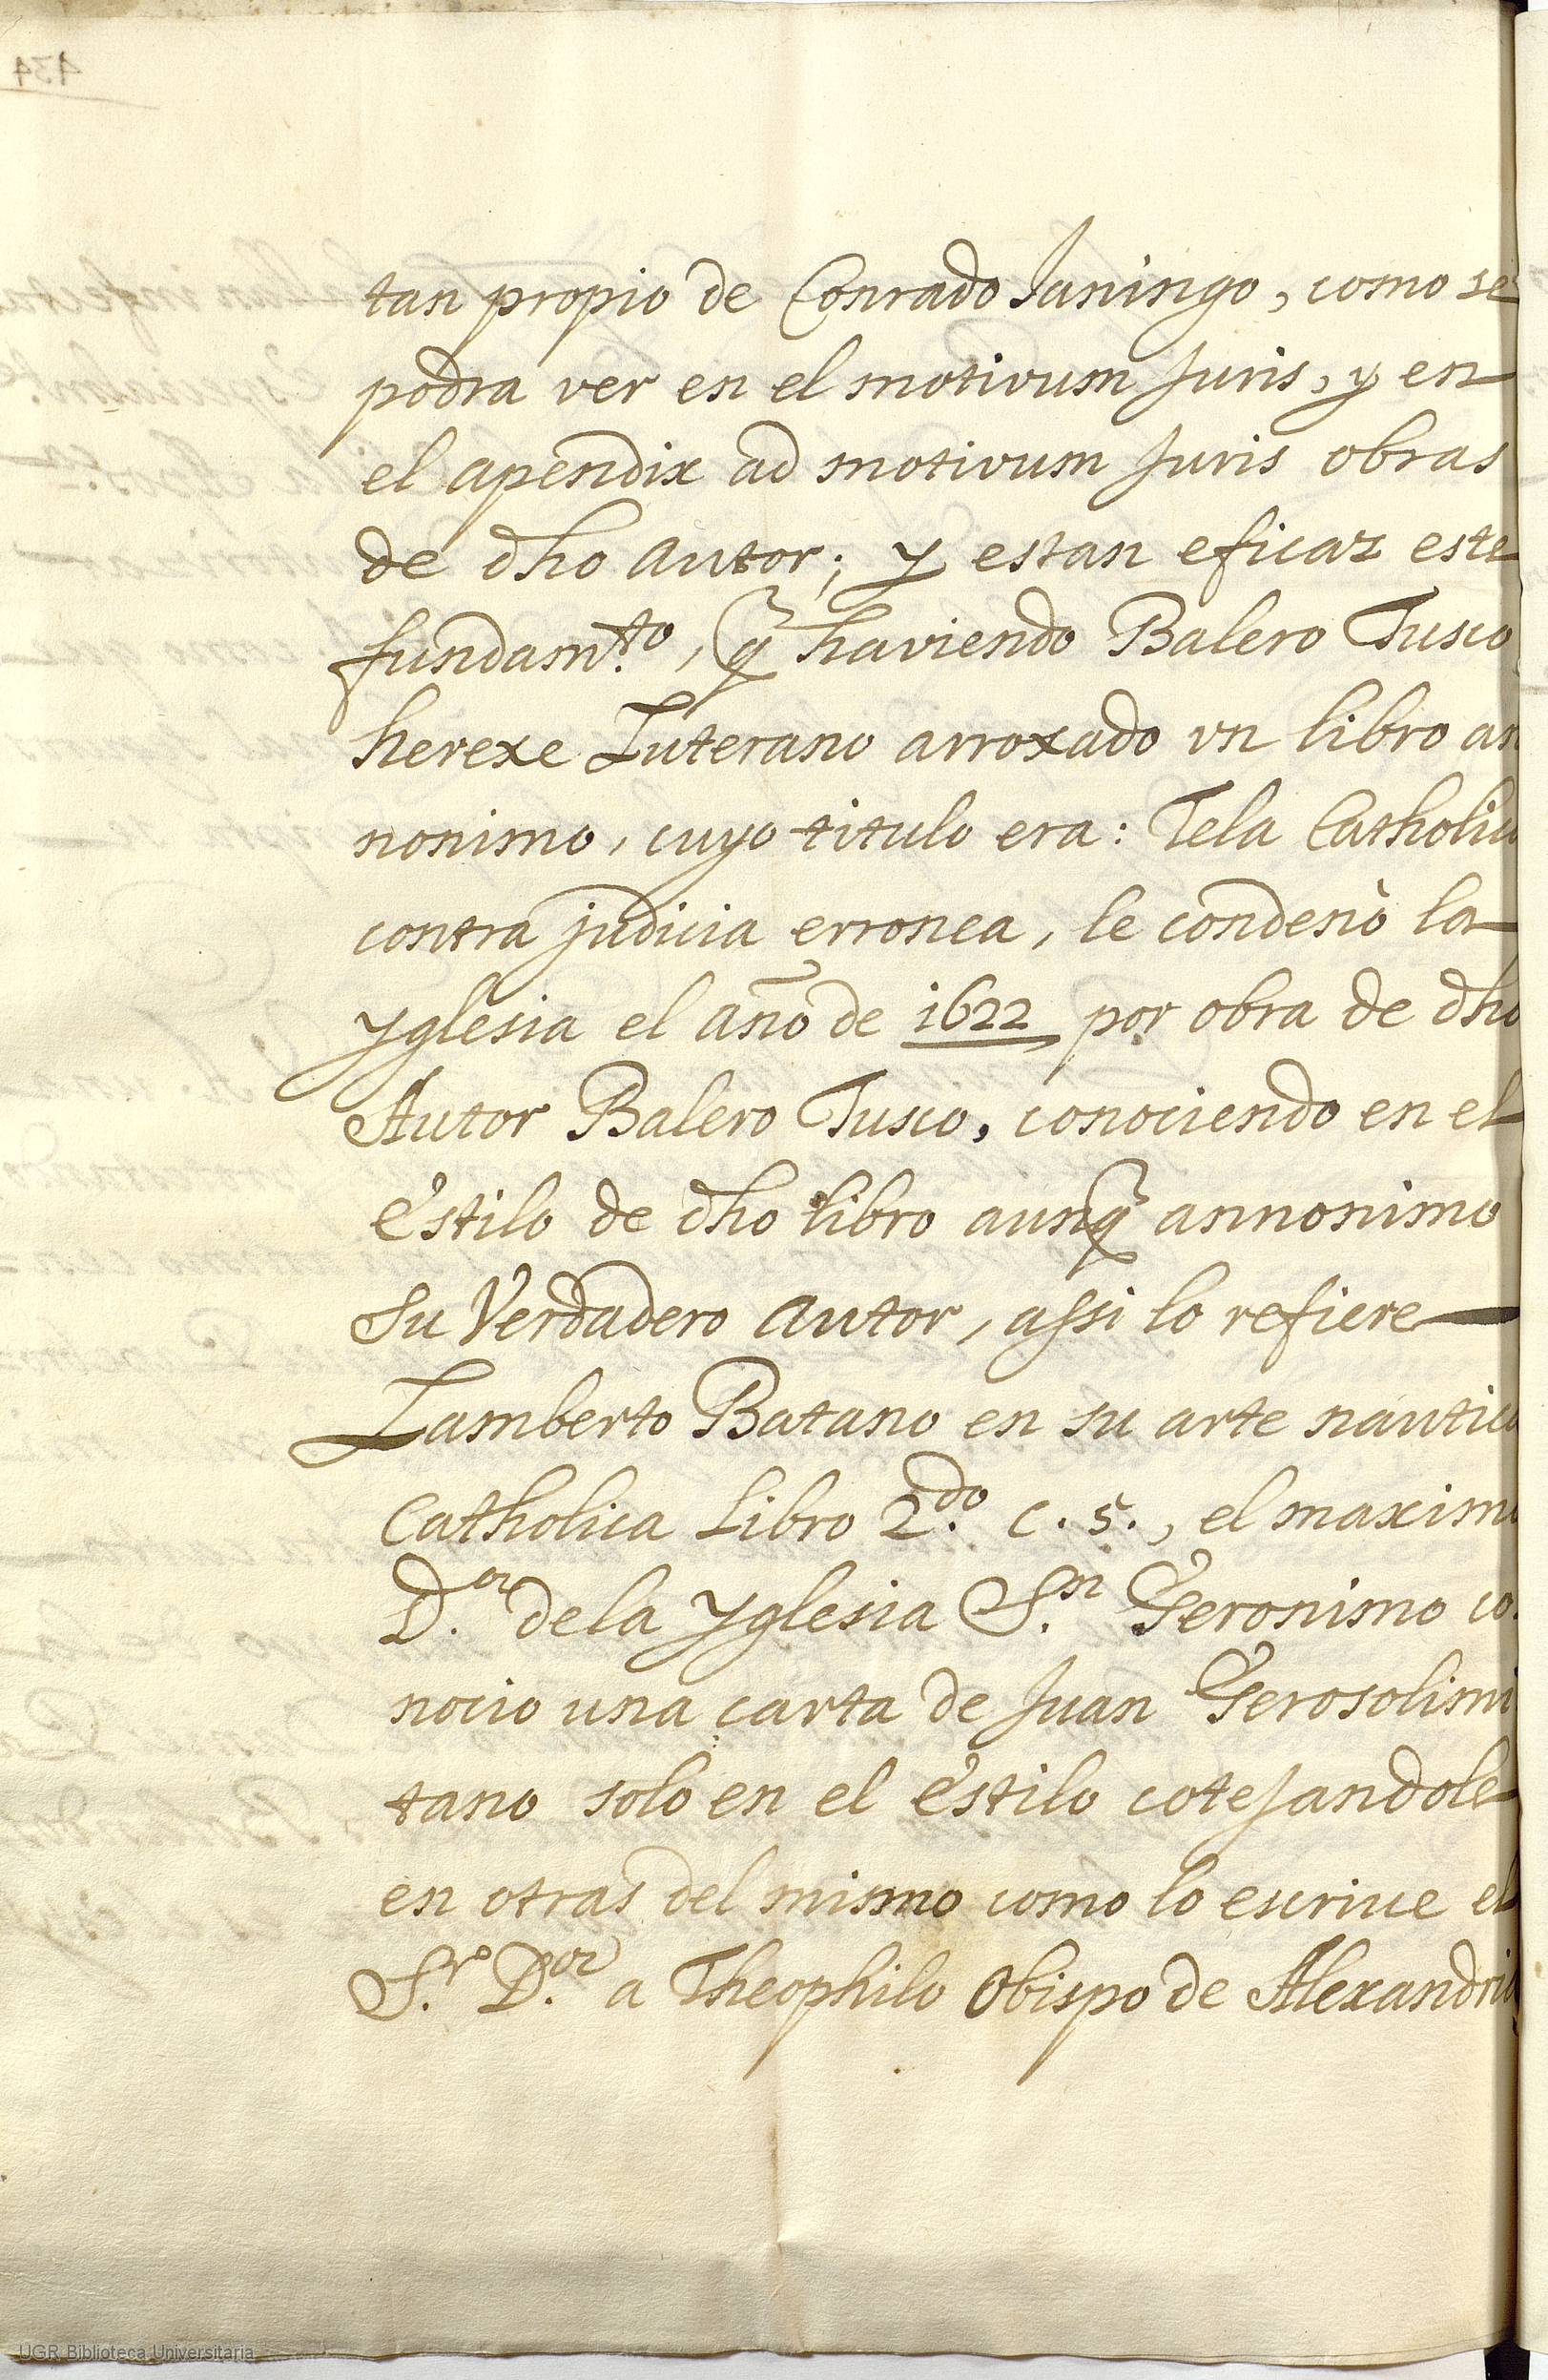 tan propio de Conrado Janingo, como se
podra ver en el motivum Juris, y en
el apendix ad motivum Juris obras
de dho autor; y estan eficaz este
fundam.to, q̃ haviendo Balero Tusco
herexe Luterano arroxado vn libro an
nonimo, cuyo titulo era: Tela Catholica
contra judicia erronea, le condenò la
yglesia el año de 1622 por obra de dho
Autor Balero Tusco, conociendo en el
estilo de dho libro aunq̃ annonimo
su Verdadero autor, assi lo refiere
Lamberto Batano en su arte nautica
Catholica Libro 2.do c. 5., el maximo
D.or de la yglesia S.n Geronimo co
nocio una carta de Juan Gerosolimi
tano solo en el estilo cotejandole
en otras del mismo como lo escrive el
S.r D.or a Theophilo Obispo de Alexandria
434
UGR Biblioteca Universitaria